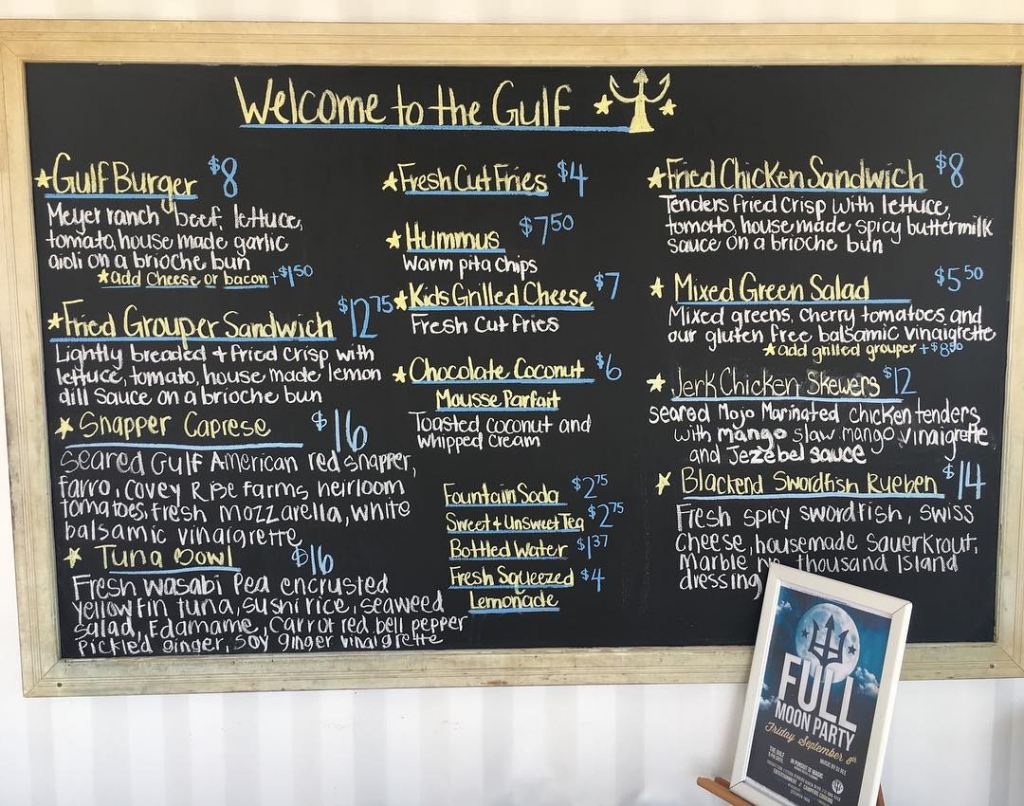 Welcome to the Gulf
Gulf Burger $8
Meyer ranch beef, lettuce,
tomato, house made garlic
aioli on a brioche bun
add Cheese or bacon +$1.50
Fried Grouper Sandwich $12.75
Lightly breaded + fried crisp with
lettuce, tomato, house made lemon
dill sauce on a brioche bun
Snapper Caprese $16
Seared Gulf American red snapper,
farro, Covey Rise farms heirloom
tomatoes, fresh mozzarella, white
balsamic vinaigrette
Tuna Bowl $16
Fresh wasabi Pea encrusted
yellow fin tuna, sushi rice, seaweed
salad, Edamame, carrot red bell pepper
pickled ginger, soy ginger vinaigrette
Fresh Cut Fries $4
Hummus $7.50
Warm pita chips
Kids Grilled Cheese $7
Fresh Cut fries
Chocolate Coconut $6
Mousse Parfait
Toasted coconut and
whipped cream
Fountain Soda $2.75
Sweet + Unsweet Tea $2.75
Bottled Water $1.37
Fresh Squeezed $4
Lemonade
Fried Chicken Sandwich $8
Tenders fried crisp with lettuce,
tomatto, house made spicy buttermilk
sauce on a brioche bun
Mixed Green Salad $5.50
Mixed greens, cherry tomatoes and
our gluten free balsamic vinaigrette
add grilled grouper +$8.50
Jerk Chicken Skewers $12
seared Mojo Marinated chicken tenders
with mango slaw mango vinaigrette
and Jezebel sauce
Blackend Swordfish Rueben $14
Fresh spicy swordfish, swiss
cheese, housemade sauerkraut,
Marble thousand Island
dressing
FULL
MOON PARTY
Friday September 8th
MUSIC BY DJ
THE GULF
IN PURSUIT OF MAGIC